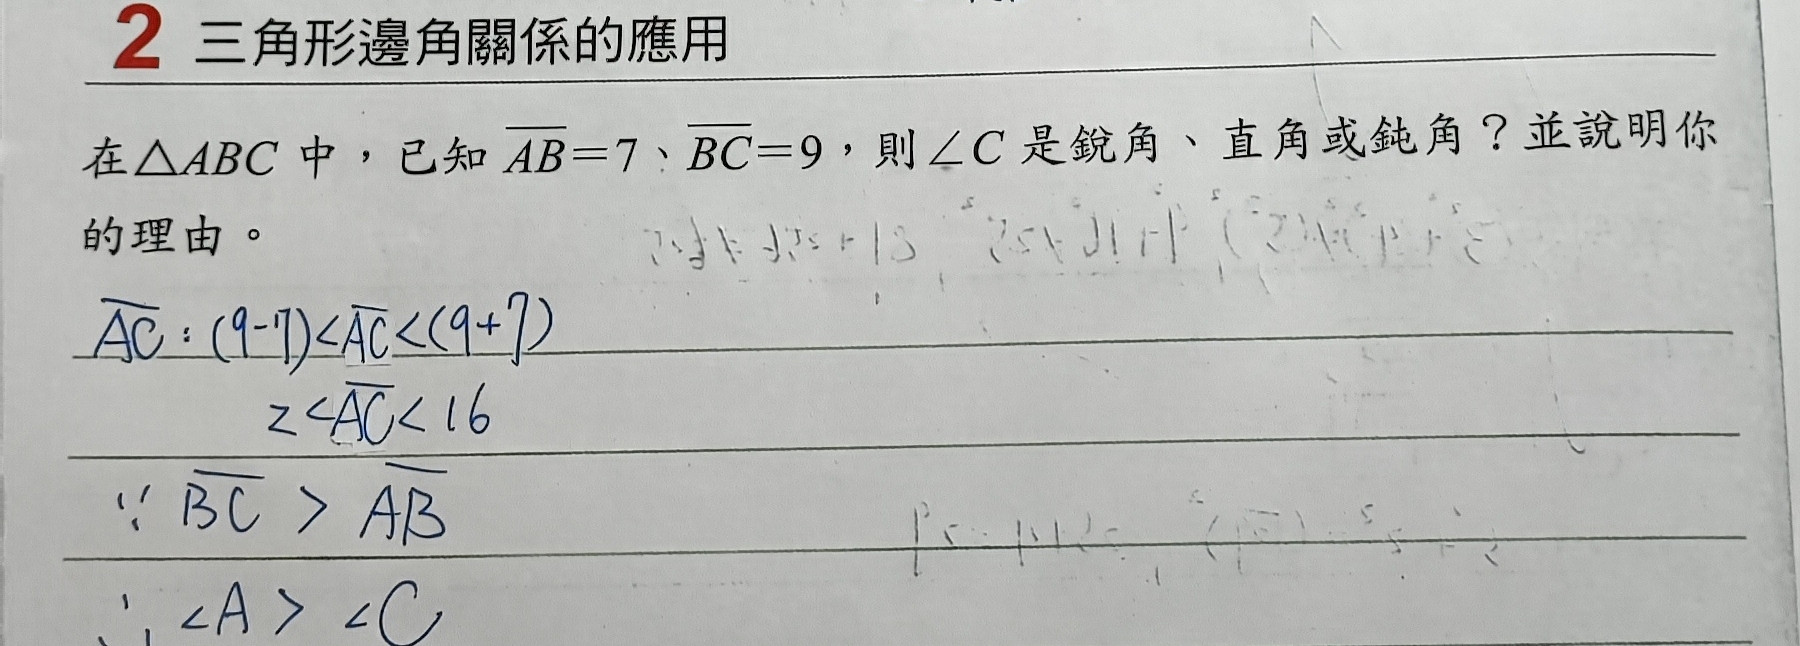 2 三角形邊角關係的應用
在△ABC 中，已知 AB=7、BC=9，則∠C 是銳角、直角或鈍角？並說明你
的理由。
AC：(9-7)<AC<(9+7)
2<AC<16
∵ BC > AB
∴ <A> <C